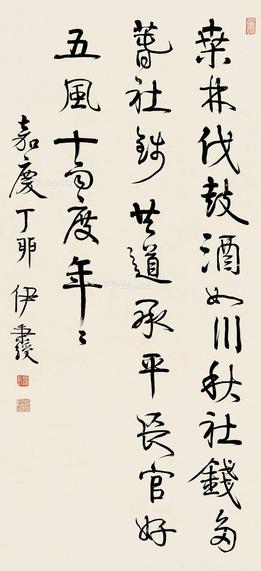 桑林伐鼓酒如川秋社錢多
萅社錢共道承平長官好
五風十雨度年〻
嘉慶丁卯伊秉綬